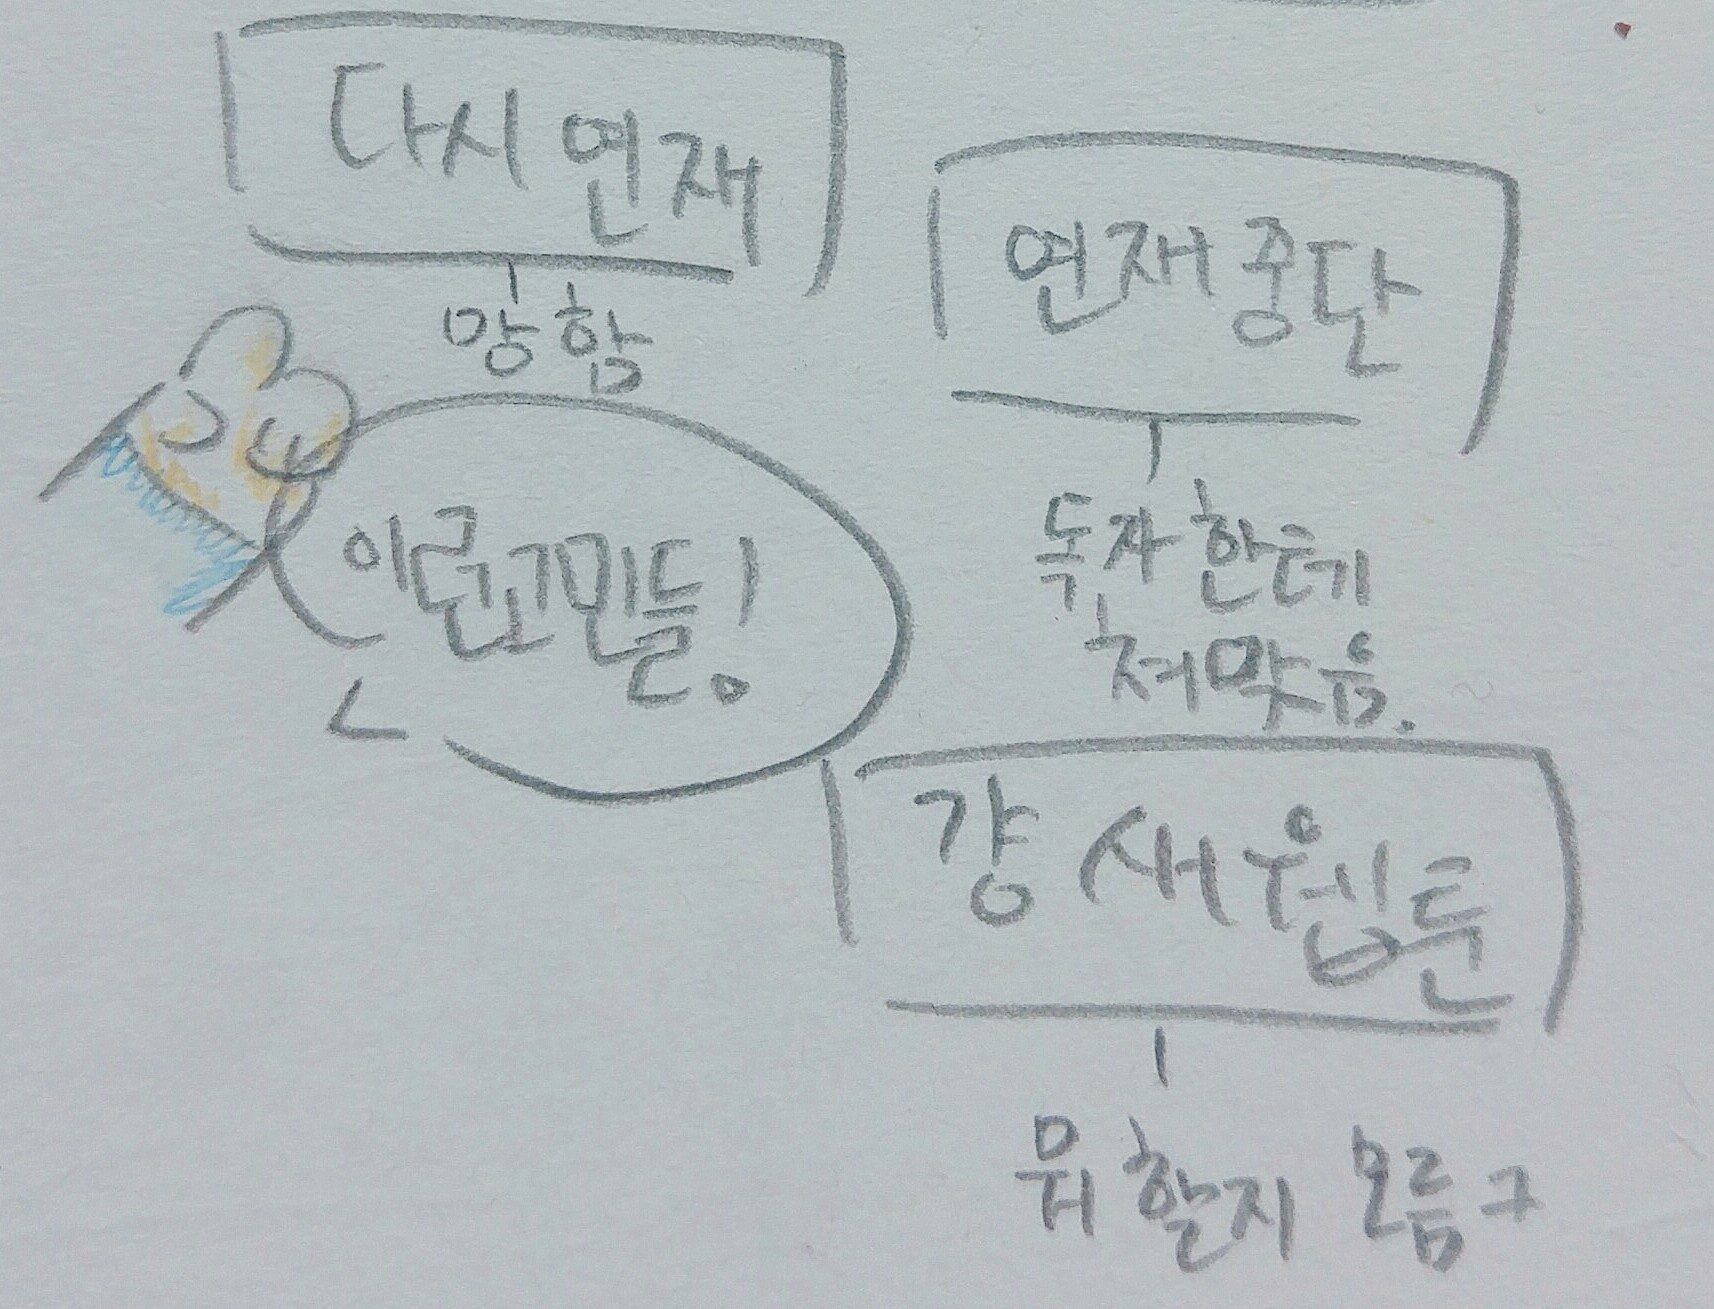 다시 연재
망함
연재 중단
독자한테
쳐맞음.
이런고민들!
걍 새 웹툰
뭐 할지 모름